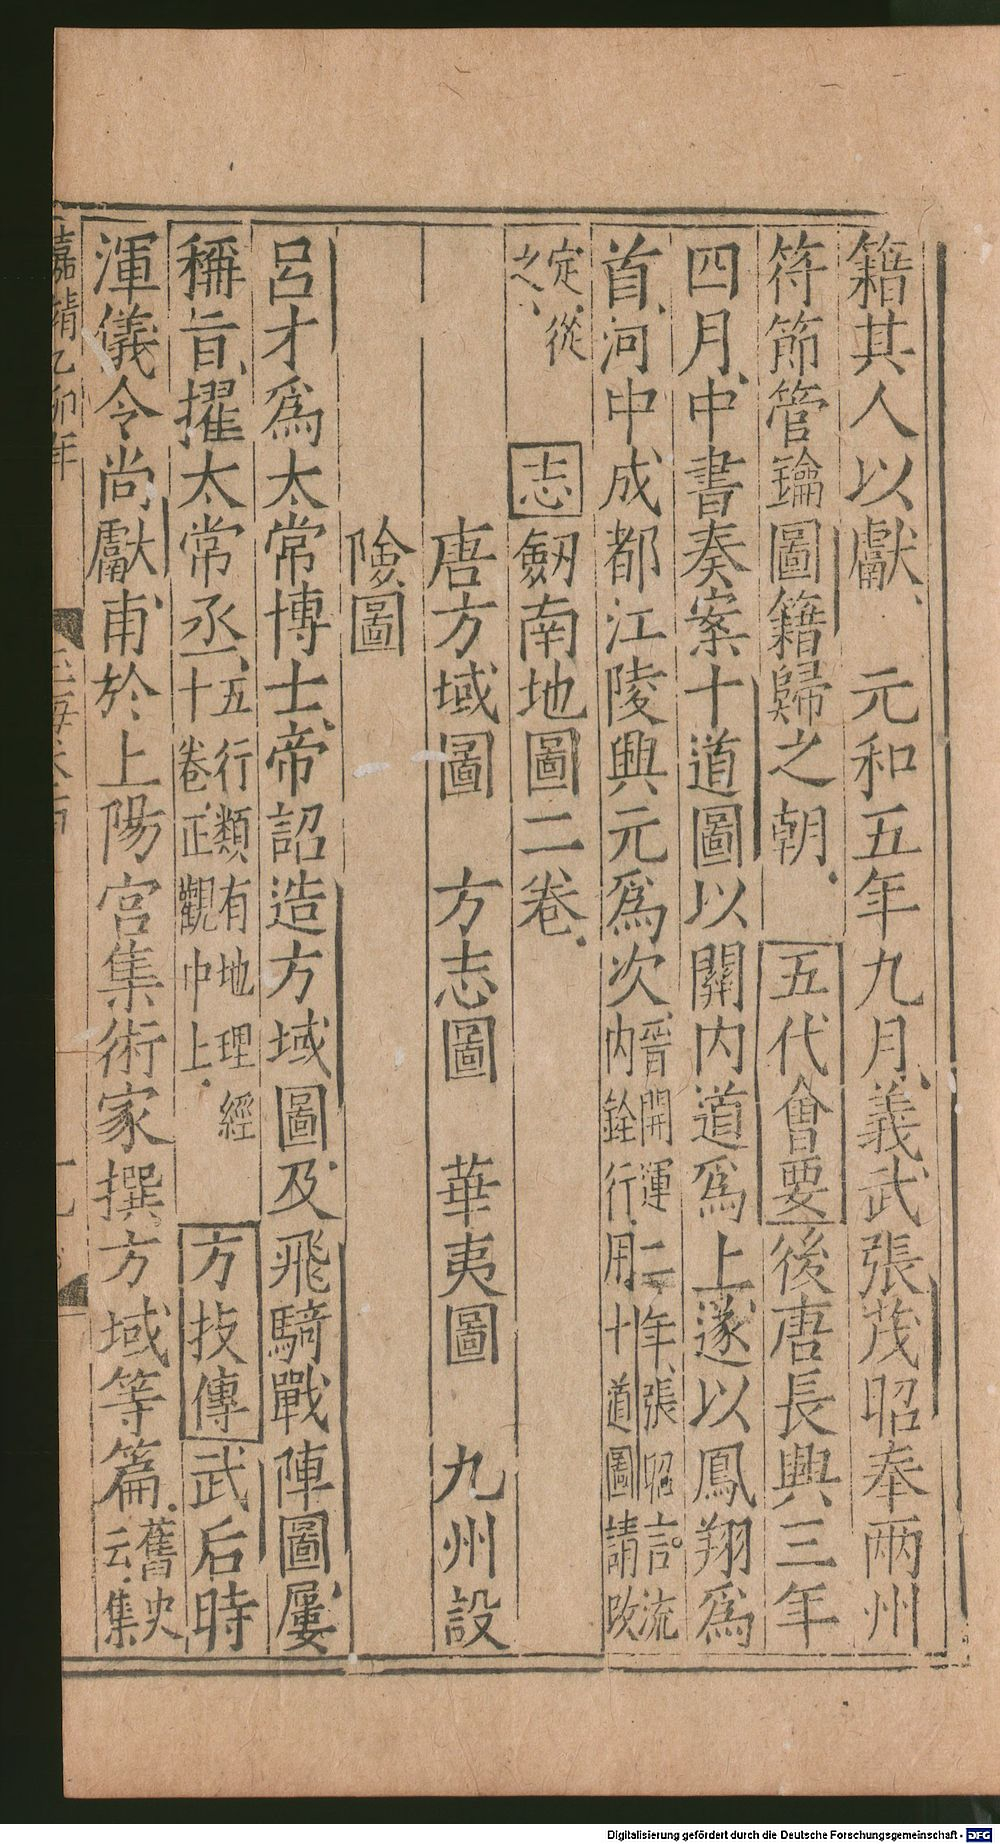 籍其人以獻、元和五年九月、義武張茂昭奉兩州
符節管鑰圖籍歸之朝．五代會要後唐長興三年
四月、中書奏案十道圖以關內道爲上遂以鳳翔爲
首、河中成都江陵興元爲次、晉開運二年、張昭言。流
內銓行．用十道圖請改
定、從
之、
志劒南地圖二卷．
唐方域圖　方志圖　華夷圖　九州設
險圖
呂才爲太常博士、帝詔造方域圖．及飛騎戰陣圖、屢
稱旨、擢太常丞、五行類有地理經
十卷、正觀中上．方技傳武后時
渾儀令尚獻甫於上陽宮集術家撰方域等篇．舊史
云、集
嘉靖乙卯年
玉海卷
Digitalisierung gefördert durch die Deutsche Forschungsgemeinschaft - DFG